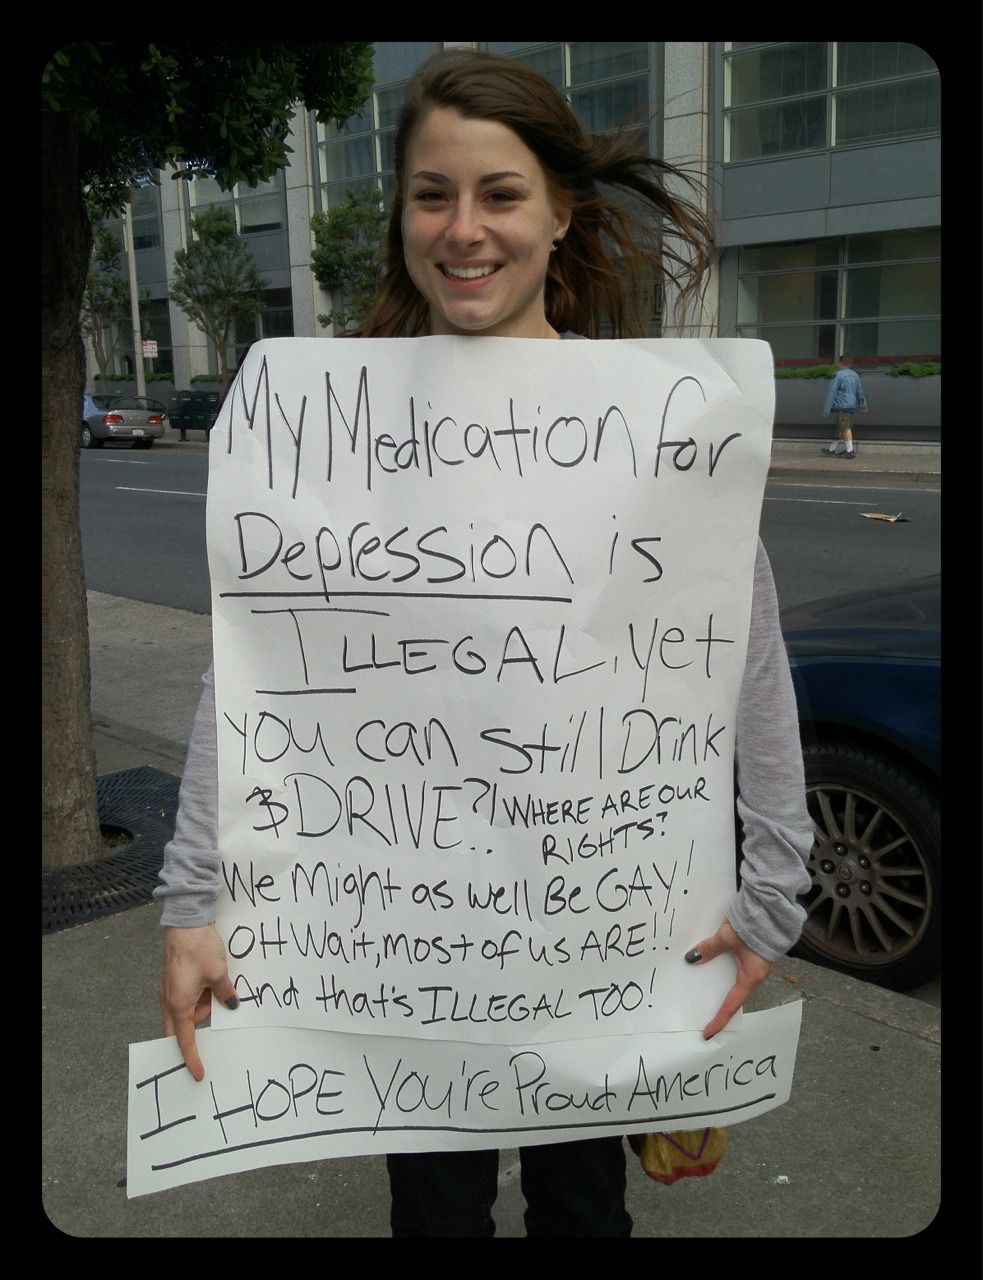 My Medication for
Depression is
ILLEGAL, yet
you can still Drink
& DRIVE?! WHERE ARE OUR
RIGHTS?
We Might as well Be GAY!
OH Wait, most of us ARE!!
And that's ILLEGAL TOO!
I HOPE You're Proud America